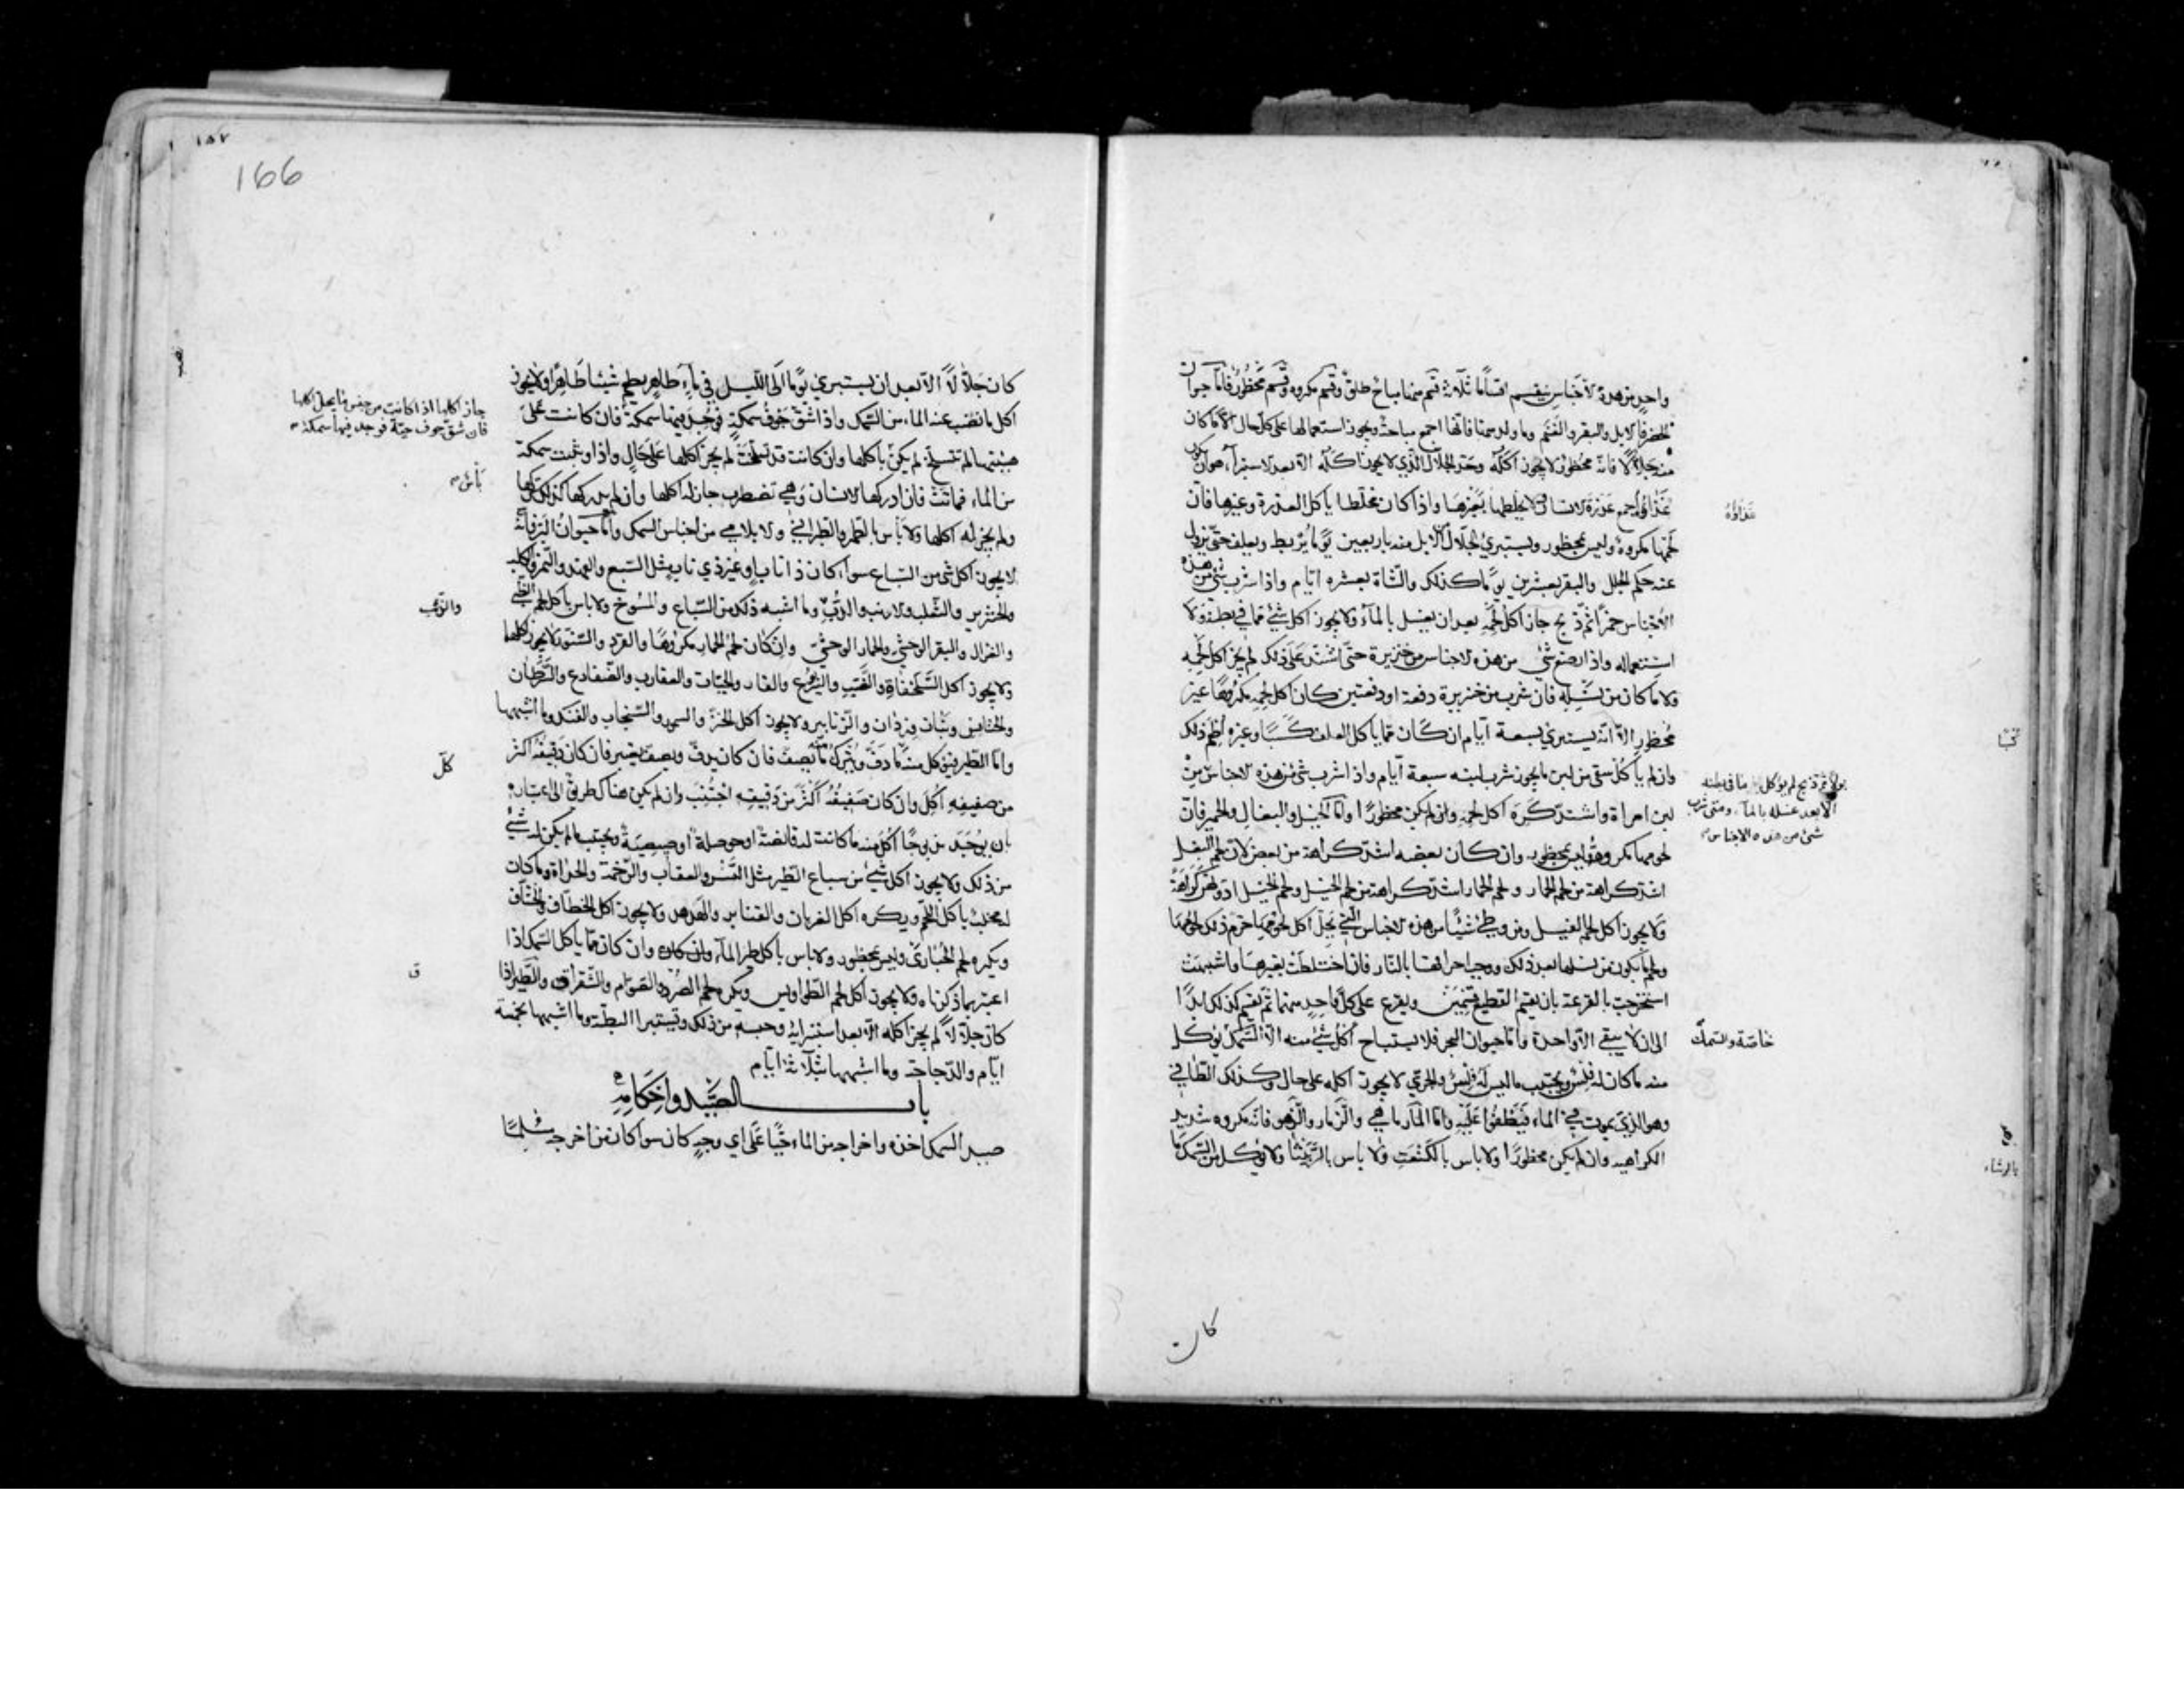 واحد من هذه الاجناس ينقسم اقساما ثلاثة قسم منها مباح طلق وقسم مكروه وقسم محظور فاما حيوان
الحضر فالابل والبقر والغنم وما ولد منها فانها اجمع مباحة ويجوز استعمالها على كل حال الا ما كان
منه جلالا فانه محظور لا يجوز اكله وحد الجلال الذي لا يجوز اكله الا بعد الاستبراء هو ان يكون
غذاؤه اجمع عذرة الانسان لا يخلطها بغيرها واذا كان مخلطا ياكل العذرة وغيرها فان
لحمها مكروه وليس بمحظور ويستبرئ الجلال الابل منه باربعين يوما يربط ويعلف حتى يزول
عنه حكم الجلل والبقر بعشرين يوما كذلك والشاة بعشره ايام واذا شرب شئ من هذه
الاجناس خمرا ثم ذبح جاز اكل لحمه بعد ان يغسل بالماء ولا يجوز اكل شئ مما في بطنه ولا
استعماله واذا رضع شئ من هذه الاجناس من خنزيرة حتى اشتد على ذلك لم يجز اكل لحمه
ولا ما كان من نسله فان شرب من خنزيرة دفعة او دفعتين كان اكل لحمه مكروها غير
محظور الا انه يستبرئ بسبعة ايام ان كان مما ياكل العلف كسبا وغيره اطعم ذلك
وان لم ياكل سقي من لبن ما يجوز شرب لبنه سبعة ايام واذا شرب شئ من هذه الاجناس من
لبن امراة واشتد كره اكل لحمه وان لم يكن محظورا واما الخيل والبغال والحمير فان
لحومها مكروهة وليس بمحظور وان كان بعضه اشد كراهة من بعض لان لحم البغل
اشد كراهة من لحم الحمار ولحم الحمار اشد كراهة من لحم الخيل ولحم الخيل ادونهن كراهة
ولا يجوز اكل لحم الفيل ومن وطئ شيئا من هذه الاجناس التي يحل اكل لحومها حرم ذلك لحومها
ولحم ما يكون من نسلها بعد ذلك ووجب احراقها بالنار فان اختلطت بغيرها واشبهت
استخرجت بالقرعة بان يقسم القطيع قسمين ويقرع على كل واحد منهما ثم يقسم كذلك ابدا
الى ان لا يبقى الا واحدة واما حيوان البحر فلا يستباح اكل شئ منه الا السمك يؤكل
منه ما كان له فلس ويجتنب ما ليس له فلس والجري لا يجوز اكله على حال وكذلك الطافي
وهو الذي يموت في الماء فيطفوا عليه واما المارماهي والزمار والزهو فانه مكروه شديد
الكراهيه وان لم يكن محظورا ولا باس بالكنعت ولا باس بالربيثا ولا يؤكل من السمك ما
غذاؤه
بولا ثم ذبح لم يؤكل ما في بطنه
الا بعد غسله بالماء ومتى شرب
شئ من هذه الاجناس
خاصة والسمك
كان
١٥٧
166
كان جلالا الا بعد ان يستبرئ يوما الى الليل في ماء طاهر يطعم شيئا طاهرا ولا يجوز
اكل ما نضب عنه الماء من السمك واذا شق جوف سمكة فوجد فيها سمكة فان كانت على
هيئتها لم تنسلخ لم يكن باكلها وان كانت قد تسلخت لم يجز اكلها على حال واذا وثبت سمكة
من الماء فماتت فان ادركها الانسان وهي تضطرب جاز له اكلها وان لم يدركها كذلك تركها
ولم يجز له اكلها ولا باس بالطمر والطبراني والابلامي من اجناس السمك واما حيوان البر فانه
لا يجوز اكل شئ من السباع سواء كان ذا ناب او غير ذي ناب مثل السبع والفهد والنمر والكلب
والخنزير والثعلب والارنب والدب وما اشبه ذلك من السباع والمسوخ ولا باس باكل لحم الظبي
والغزال والبقر الوحشي والحمار الوحشي وان كان لحم الحمار مكروها والقرد والسنور لا يجوز اكلها
ولا يجوز اكل السلحفاة والضب واليربوع والفار والحيات والعقارب والضفادع والسرطان
والخنافس وبنات وردان والزنابير ولا يجوز اكل الخز والسمور والسنجاب والفنك وما اشبهها
واما الطير فيؤكل منه ما دف ويترك ما يصف فان كان يدف ويصف يعتبر فان كان دفيفه اكثر
من صفيفه اكل وان كان صفيفه اكثر من دفيفه اجتنب وان لم يكن هناك طريق الى اعتباره
بان يوجد مذبوحا اكل منه ما كانت له قانصة او حوصلة او صيصية ويجتنب ما لم يكن له شئ
من ذلك ولا يجوز اكل شئ من سباع الطير مثل النسر والعقاب والرخمة والحداة وما كان
له مخلب ياكل اللحم ويكره اكل الغربان والقنابر والهدهد ولا يجوز اكل الخطاف والخشاف
ويكره لحم الحبارى وليس بمحظور ولا باس باكل طير الماء وان كان مما ياكل السمك اذا
اعتبر بما ذكرناه ولا يجوز اكل لحم الطواويس ويكره لحم الصرد والصوام والشقراق والطير اذا
كان جلالا لم يجز اكله الا بعد استبرائه وحبسه من ذلك وتستبرا البطة وما اشبهها بخمسة
ايام والدجاجة وما اشبهها بثلاثة ايام
باب الصيد واحكامه
صيد السمك اخذه واخراجه من الماء حيا على اي وجه كان سوا كان من اخرجه مسلما
جاز اكلها اذا كانت من جنس ما يحل اكلها
فان شق جوف حية فوجد فيها سمكة
باس
والوهب
كل
ق